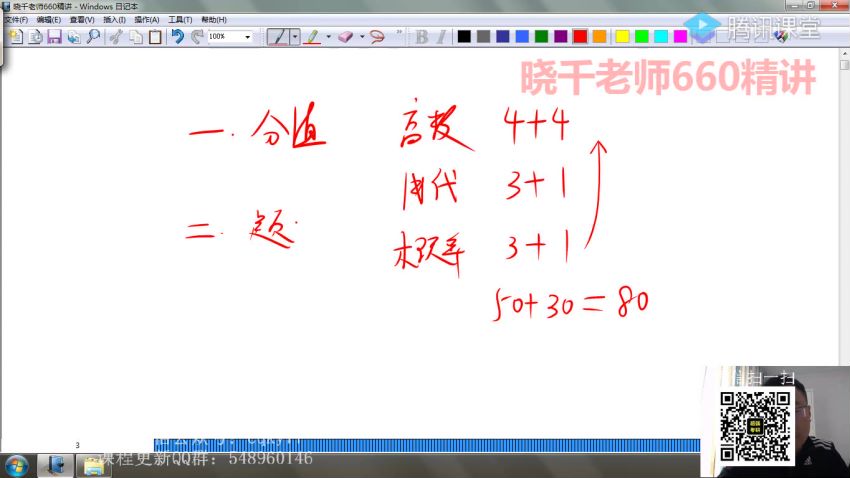 晓千老师660精讲 - Windows 日记本
文件(F) 编辑(E) 查看(V) 插入(I) 操作(A) 工具(T) 帮助(H)
100%
B I
腾讯课堂
晓千老师660精讲
一. 分值 高数 4+4
线代 3+1
二. 题 概率 3+1
50+30=80
扫一扫
3
课程更新QQ群：548960146